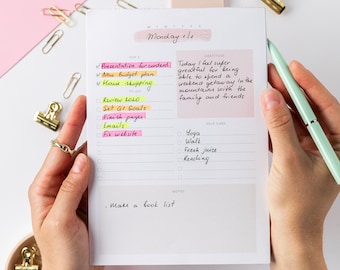 Monday
Presentation for content
New budget plan
House shopping
Today I feel super
grateful for being
able to spend a
weekend getaway in the
mountains with the
family and friends
Review 2020
Set Q1 Goals
Emails
Fix website
Yoga
Walk
Fresh juice
Reading
NOTES
. Make a book list